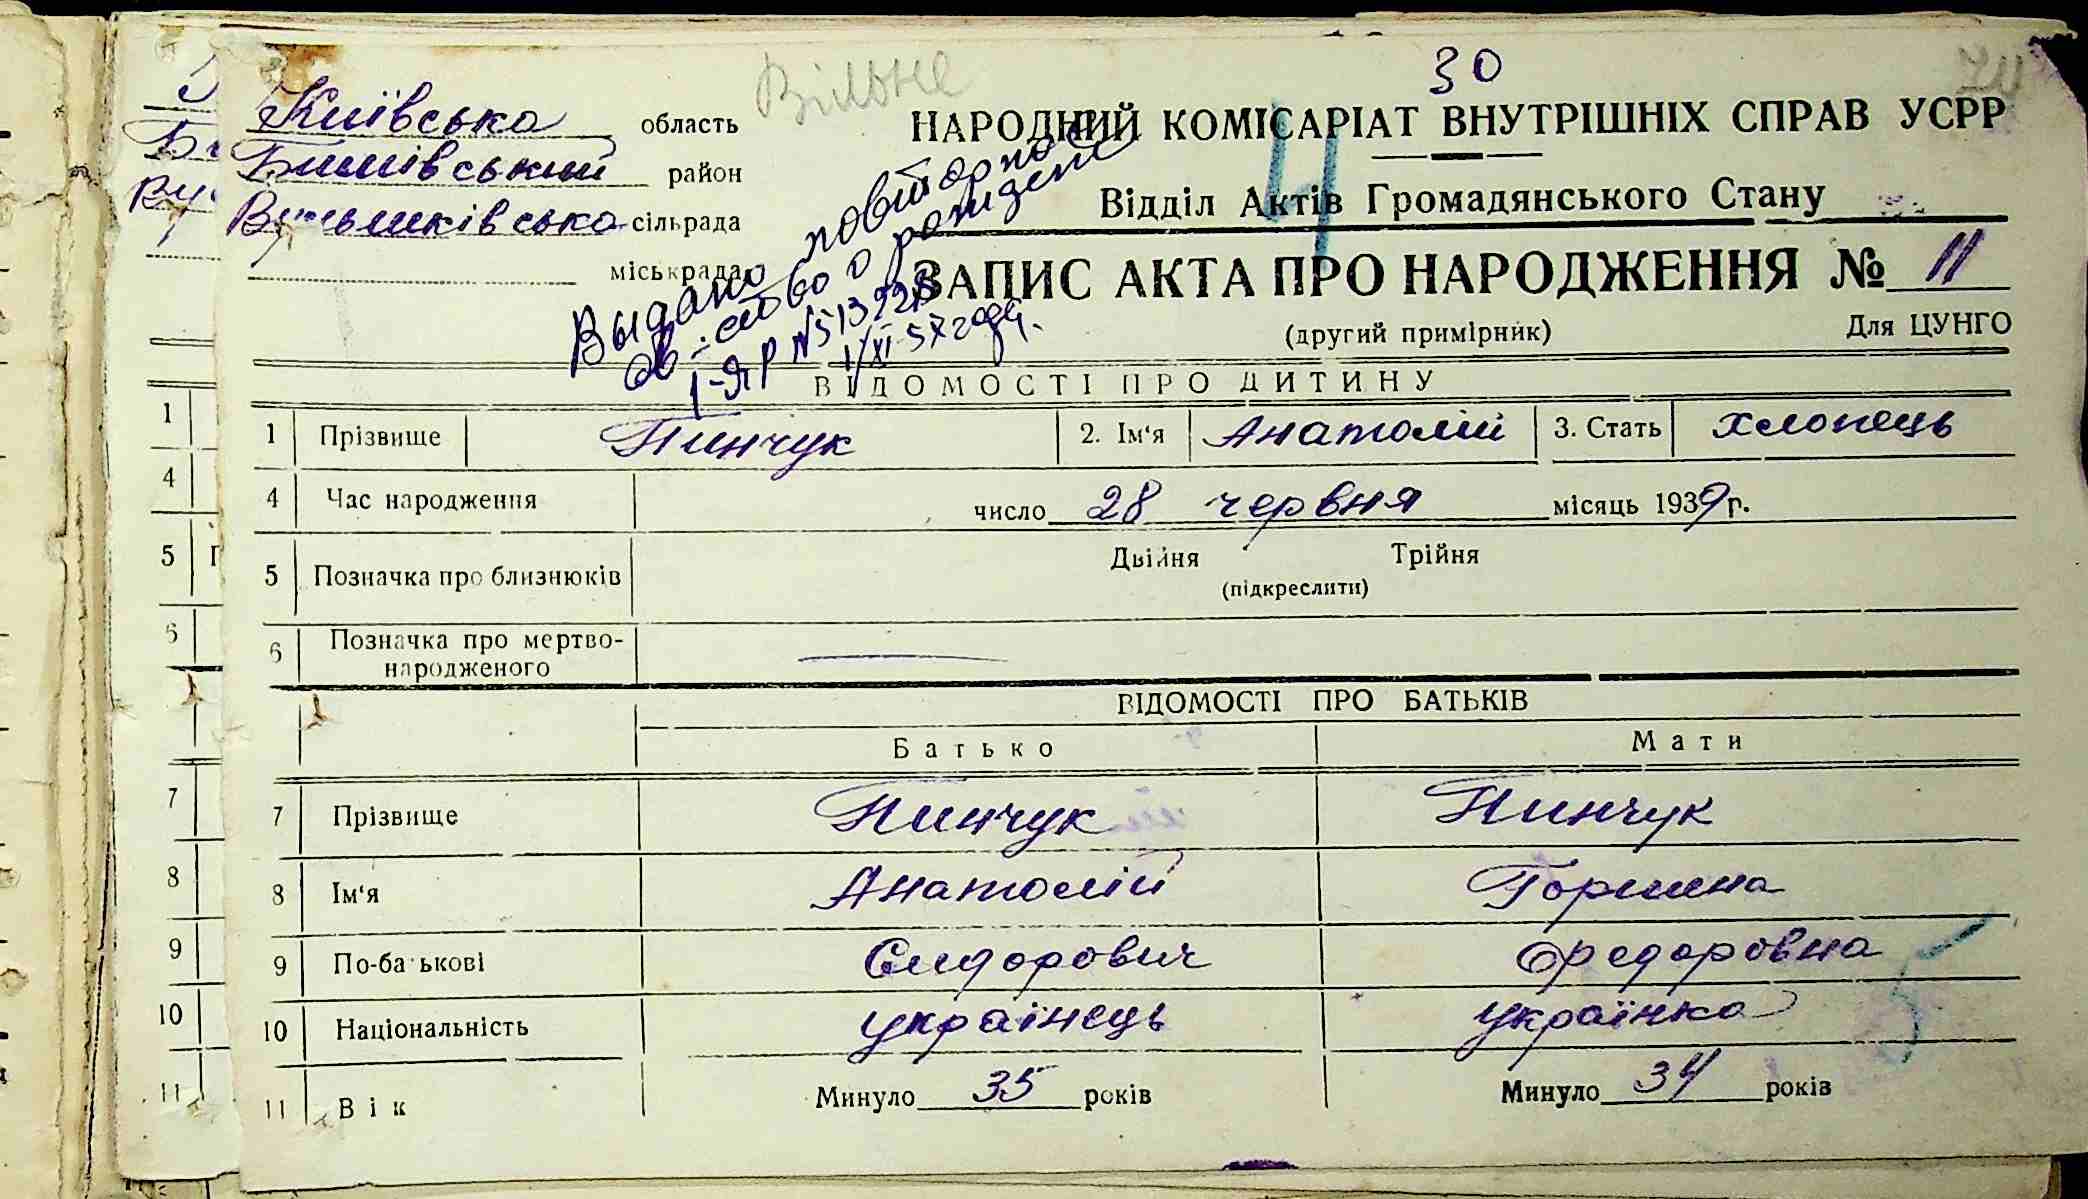 30
Вільне
Київська область
НАРОДНИЙ КОМІСАРІАТ ВНУТРІШНІХ СПРАВ УСРР
район
сільрада
Відділ Актів Громадянського Стану
міськрада
ЗАПИС АКТА ПРО НАРОДЖЕННЯ № 11
(другий примірник)
Для ЦУНГО
Выдано повторно
св-ство о рожден
І-ЯР №
ВІДОМОСТІ ПРО ДИТИНУ
1 Прізвище Пинчук 2. Ім'я Анатолій 3. Стать хлопець
4 Час народження число 28 червня місяць 1939 р.
5 Позначка про близнюків Двійня Трійня
(підкреслити)
6 Позначка про мертво-
народженого
ВІДОМОСТІ ПРО БАТЬКІВ
Батько Мати
7 Прізвище Пинчук Пинчук
8 Ім'я Анатолій Горпина
9 По-батькові Сидорович Федоровна
10 Національність українець українка
11 Вік Минуло 35 років Минуло 34 років